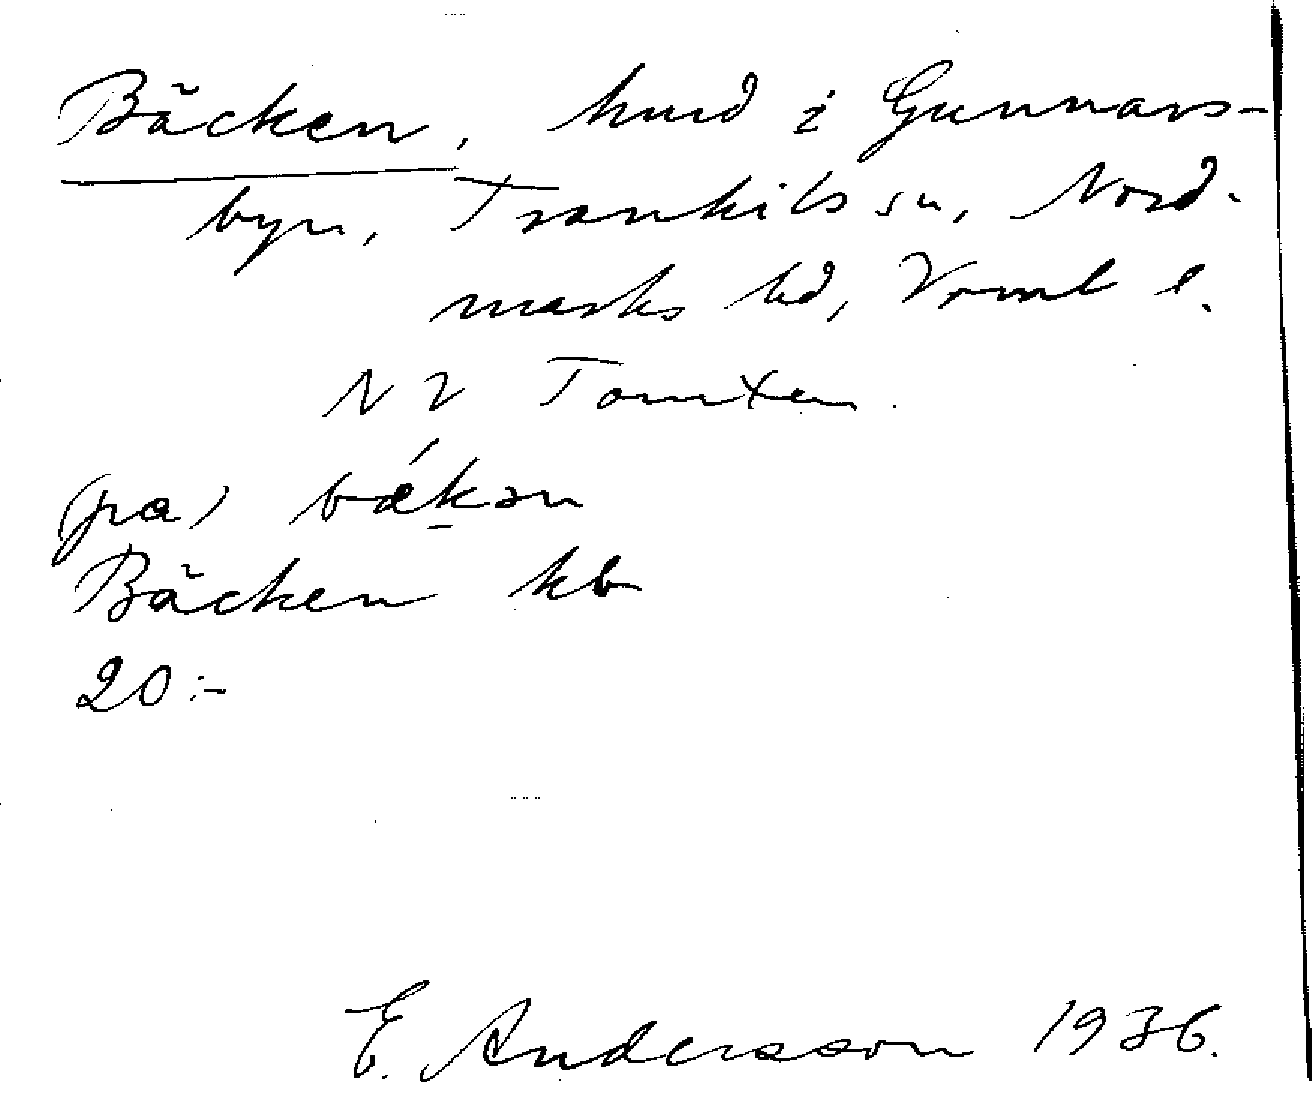 Bäcken, hmd i Gunnars-
byn, Trankils sn, Nord-
marks hd, Vrml l.
NV Tomten.
(på) bǽkən
Bäcken kb
20:-
E. Andersson 1936.